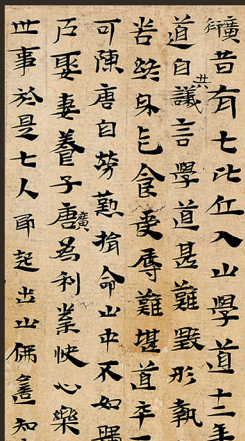 廣衍昔有七比丘入山學道十二年
道自共議言學道甚難毀形執
苦終身乞食受辱難堪道卒
可除唐自勞懃捐命山中不如歸
戶娶妻養子唐廣為利業快心樂
世事於是七人即起出山佛遙知